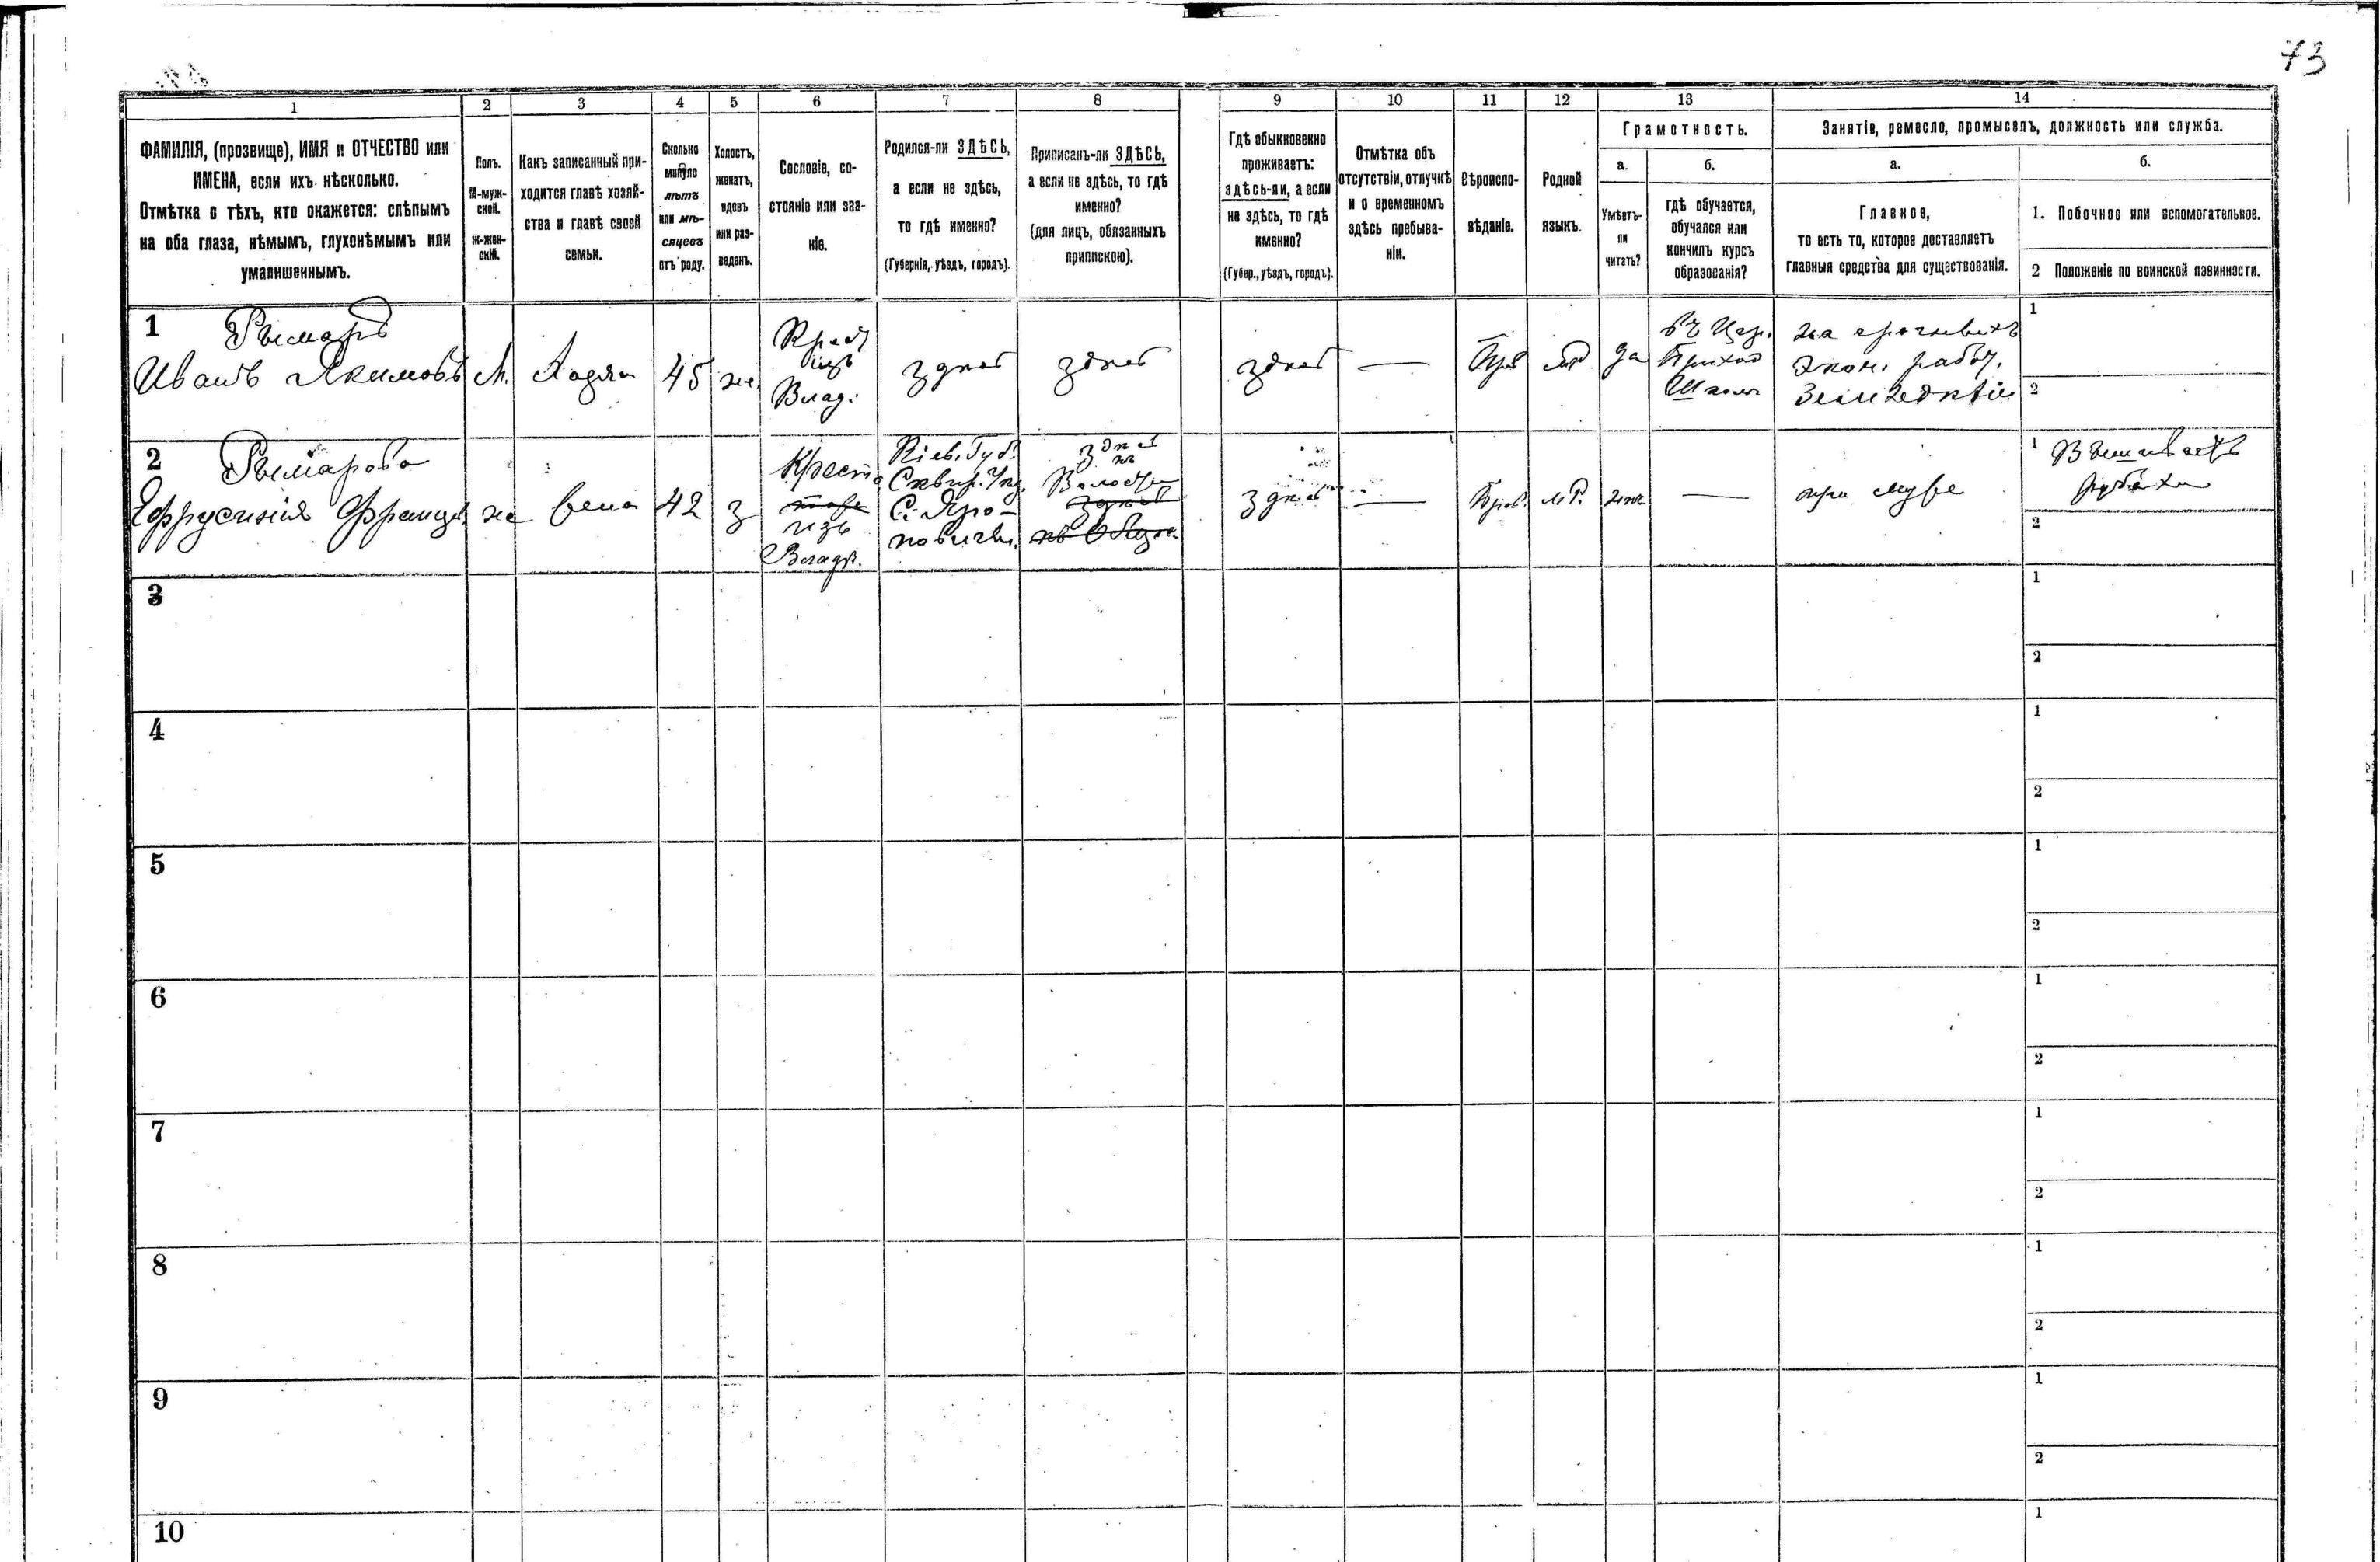 73
1 2 3 4 5 6 7 8 9 10 11 12 13 14
ФАМИЛІЯ, (прозвище), ИМЯ и ОТЧЕСТВО или
ИМЕНА, если ихъ нѣсколько.
Отмѣтка о тѣхъ, кто окажется: слѣпымъ
на оба глаза, нѣмымъ, глухонѣмымъ или
умалишеннымъ.
Полъ.
М-муж-
ской.
ж-жен-
скій.
Какъ записанный при-
ходится главѣ хозяй-
ства и главѣ своей
семьи.
Сколько
минуло
лѣтъ
или мѣ-
сяцевъ
отъ роду.
Холостъ,
женатъ,
вдовъ
или раз-
веденъ.
Сословіе, со-
стояніе или зва-
ніе.
Родился-ли ЗДѢСЬ,
а если не здѣсь,
то гдѣ именно?
(Губернія, уѣздъ, городъ).
Приписанъ-ли ЗДѢСЬ,
а если не здѣсь, то гдѣ
именно?
(для лицъ, обязанныхъ
припискою).
Гдѣ обыкновенно
проживаетъ:
здѣсь-ли, а если
не здѣсь, то гдѣ
именно?
(Губер., уѣздъ, городъ).
Отмѣтка объ
отсутствіи, отлучкѣ
и о временномъ
здѣсь пребыва-
ніи.
Вѣроиспо-
вѣданіе.
Родной
языкъ.
Грамотность.
а.
Умѣетъ-
ли
читать?
б.
гдѣ обучается,
обучался или
кончилъ курсъ
образованія?
Занятіе, ремесло, промыселъ, должность или служба.
а.
Главное,
то есть то, которое доставляетъ
главныя средства для существованія.
б.
1. Побочное или вспомогательное.
2 Положеніе по воинской повинности.
1
Рымаръ
Иванъ Якимовъ
М.
Хозяинъ
45
ж.
Крест
изъ
Влад.
здѣсь
здѣсь
здѣсь
—
Прав
МР
да
въ Цер.
Приход
Школѣ
на срочныхъ
Экон. работ.
Земледѣліе
1
2
2
Рымарова
Ефрусинія Франц.
ж
жена
42
з
Крест
изъ
Владѣл.
Кіев. Губ.
Сквир. Уѣз.
С. Яро-
повичи.
здѣсь
къ
Волости
здѣсь
—
Прав.
МР.
нѣт
—
при мужѣ
1 Вышиваетъ
рубахи
2
3
1
2
4
1
2
5
1
2
6
1
2
7
1
2
8
1
2
9
1
2
10
1